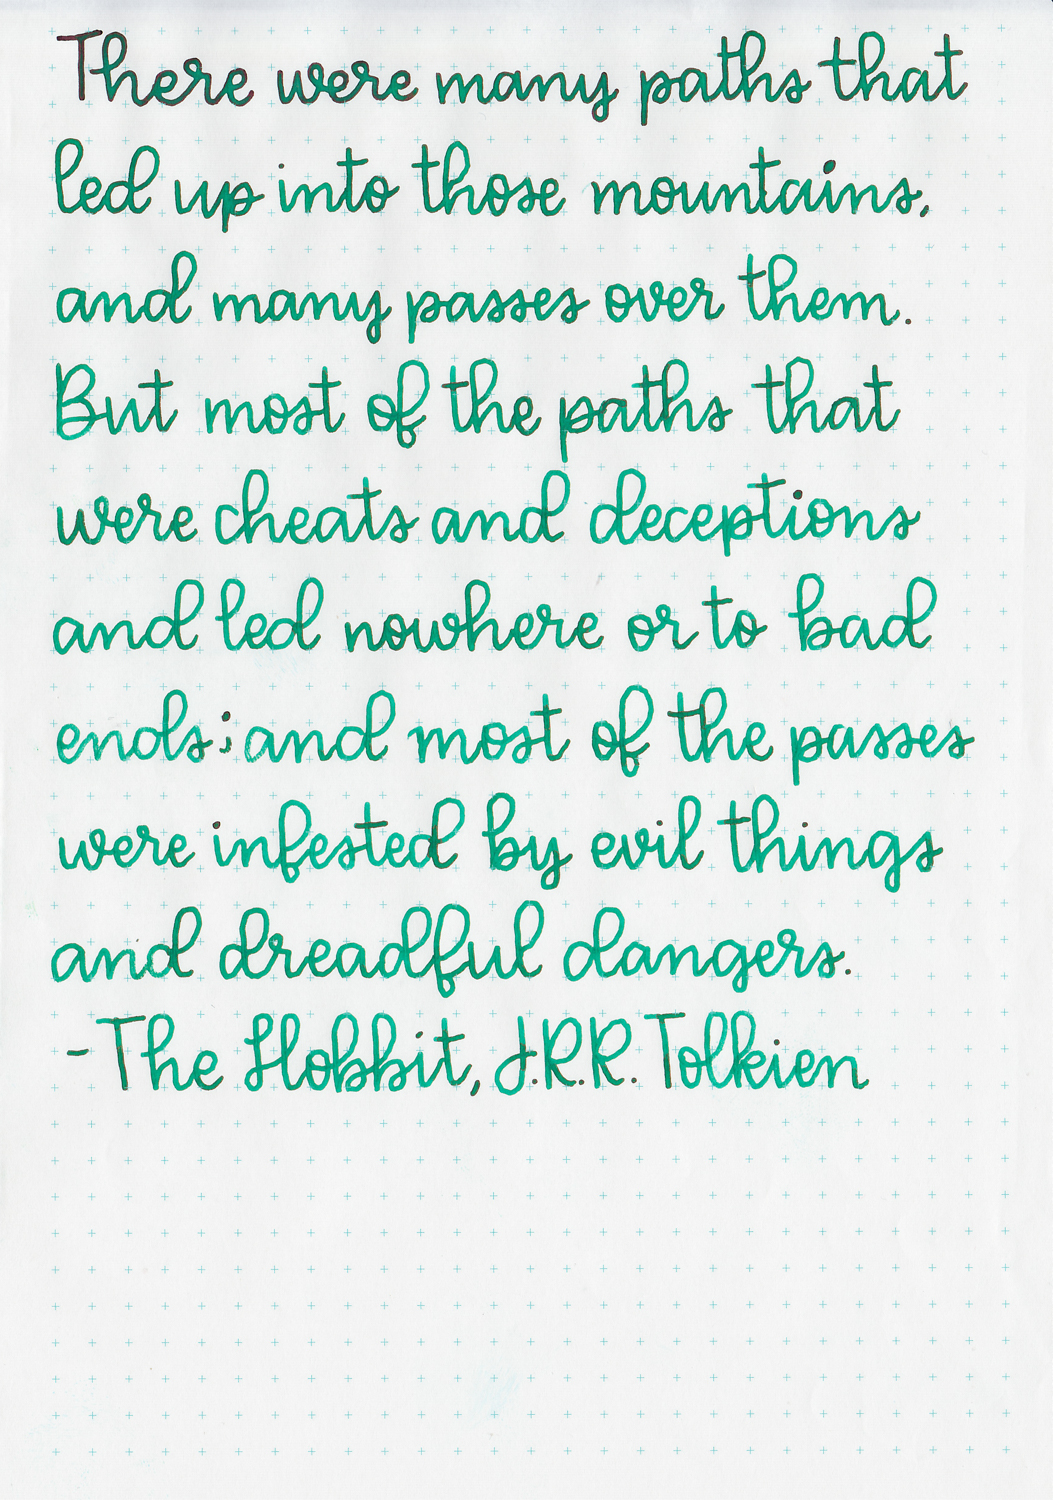 There were many paths that
led up into those mountains,
and many passes over them.
But most of the paths that
were cheats and deceptions
and led nowhere or to bad
ends; and most of the passes
were infested by evil things
and dreadful dangers.
-The Hobbit, J.R.R. Tolkien